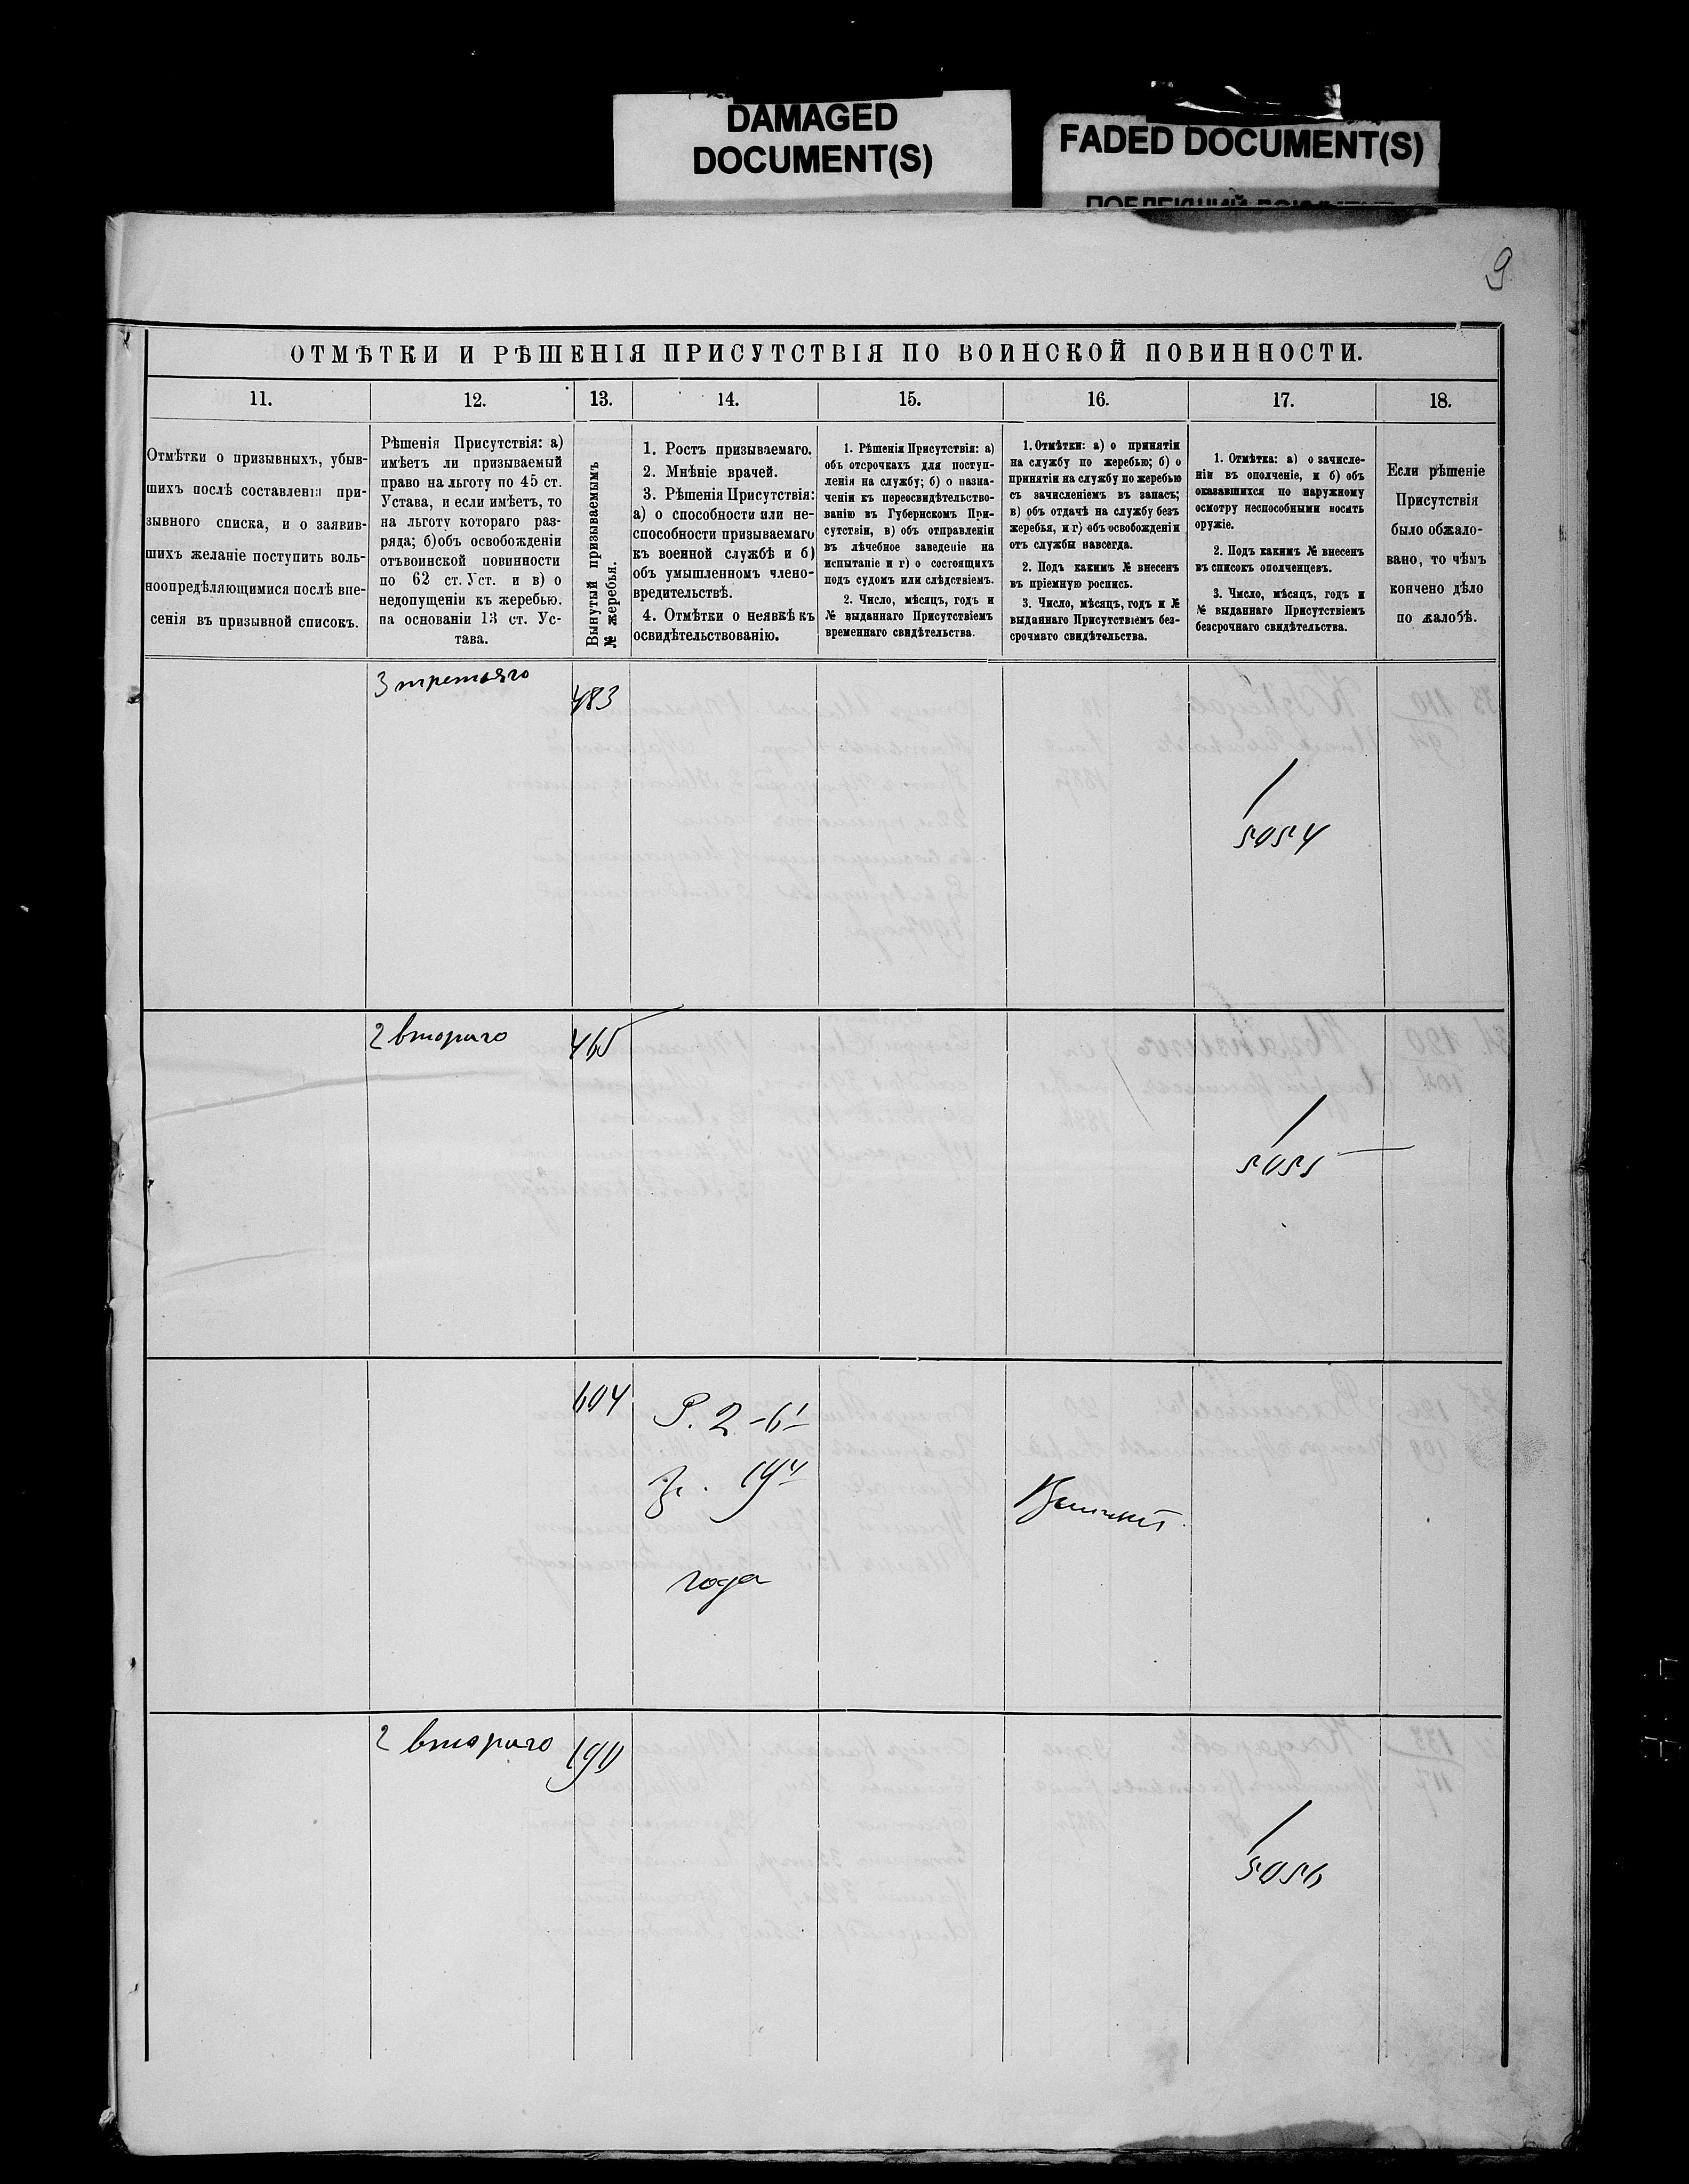 DAMAGED
DOCUMENT(S)
FADED DOCUMENT(S)
9
ОТМѢТКИ И РѢШЕНІЯ ПРИСУТСТВІЯ ПО ВОИНСКОЙ ПОВИННОСТИ.
11.
12.
13.
14.
15.
16.
17.
18.
Отмѣтки о призывныхъ, убыв-
шихъ послѣ составленія при-
зывного списка, и о заявив-
шихъ желаніе поступить воль-
ноопредѣляющимися послѣ вне-
сенія въ призывной списокъ.
Рѣшенія Присутствія: а)
имѣетъ ли призываемый
право на льготу по 45 ст.
Устава, и если имѣетъ, то
на льготу котораго раз-
ряда; б) объ освобожденіи
отъ воинской повинности
по 62 ст. Уст. и в) о
недопущеніи къ жеребью.
на основаніи 13 ст. Ус-
тава.
Вынутый призываемымъ
№ жеребья.
1. Ростъ призываемаго.
2. Мнѣніе врачей.
3. Рѣшенія Присутствія:
а) о способности или не-
способности призываемаго
къ военной службѣ и б)
объ умышленномъ члено-
вредительствѣ.
4. Отмѣтки о неявкѣ къ
освидѣтельствованію.
1. Рѣшенія Присутствія: а)
объ отсрочкахъ для поступ-
ленія на службу; б) о назна-
ченіи къ переосвидѣтельство-
ванію въ Губернскомъ При-
сутствіи, в) объ отправленіи
въ лѣчебное заведеніе на
испытаніе и г) о состоящихъ
подъ судомъ или слѣдствіемъ.
2. Число, мѣсяцъ, годъ и
№ выданнаго Присутствіемъ
временнаго свидѣтельства.
1. Отмѣтки: а) о принятіи
на службу по жеребью; б) о
принятіи на службу по жеребью
съ зачисленіемъ въ запасъ;
в) объ отдачѣ на службу безъ
жеребья, и г) объ освобожденіи
отъ службы навсегда.
2. Подъ какимъ № внесенъ
въ пріемную роспись.
3. Число, мѣсяцъ, годъ и №
выданнаго Присутствіемъ без-
срочнаго свидѣтельства.
1. Отмѣтка: а) о зачисле-
ніи въ ополченіе, и б) объ
оказавшихся по наружному
осмотру неспособными носить
оружіе.
2. Подъ какимъ № внесенъ
въ списокъ ополченцевъ.
3. Число, мѣсяцъ, годъ и
№ выданнаго Присутствіемъ
безсрочнаго свидѣтельства.
Если рѣшеніе
Присутствія
было обжало-
вано, то чѣмъ
кончено дѣло
по жалобѣ.
3 третьяго
483
/
5054
2 второго
465
/
5055
604
Р. 2-6 1/
года
2 второго
190
/
5056